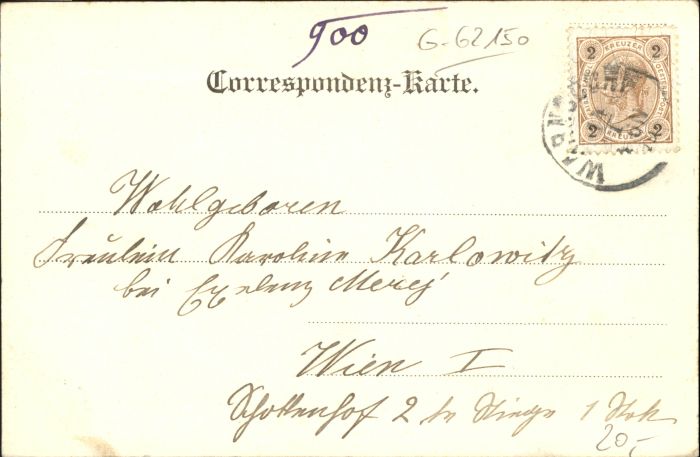 900
G-62150
Correspondenz-Karte.
2 KREUZER 2
2 KREUZER 2
Wohlgeboren
Fräulein Karoline Karlowitz
bei Exelenz Merej
Wien I
Schottenhof 2 te Stiege 1 Stok
20,-